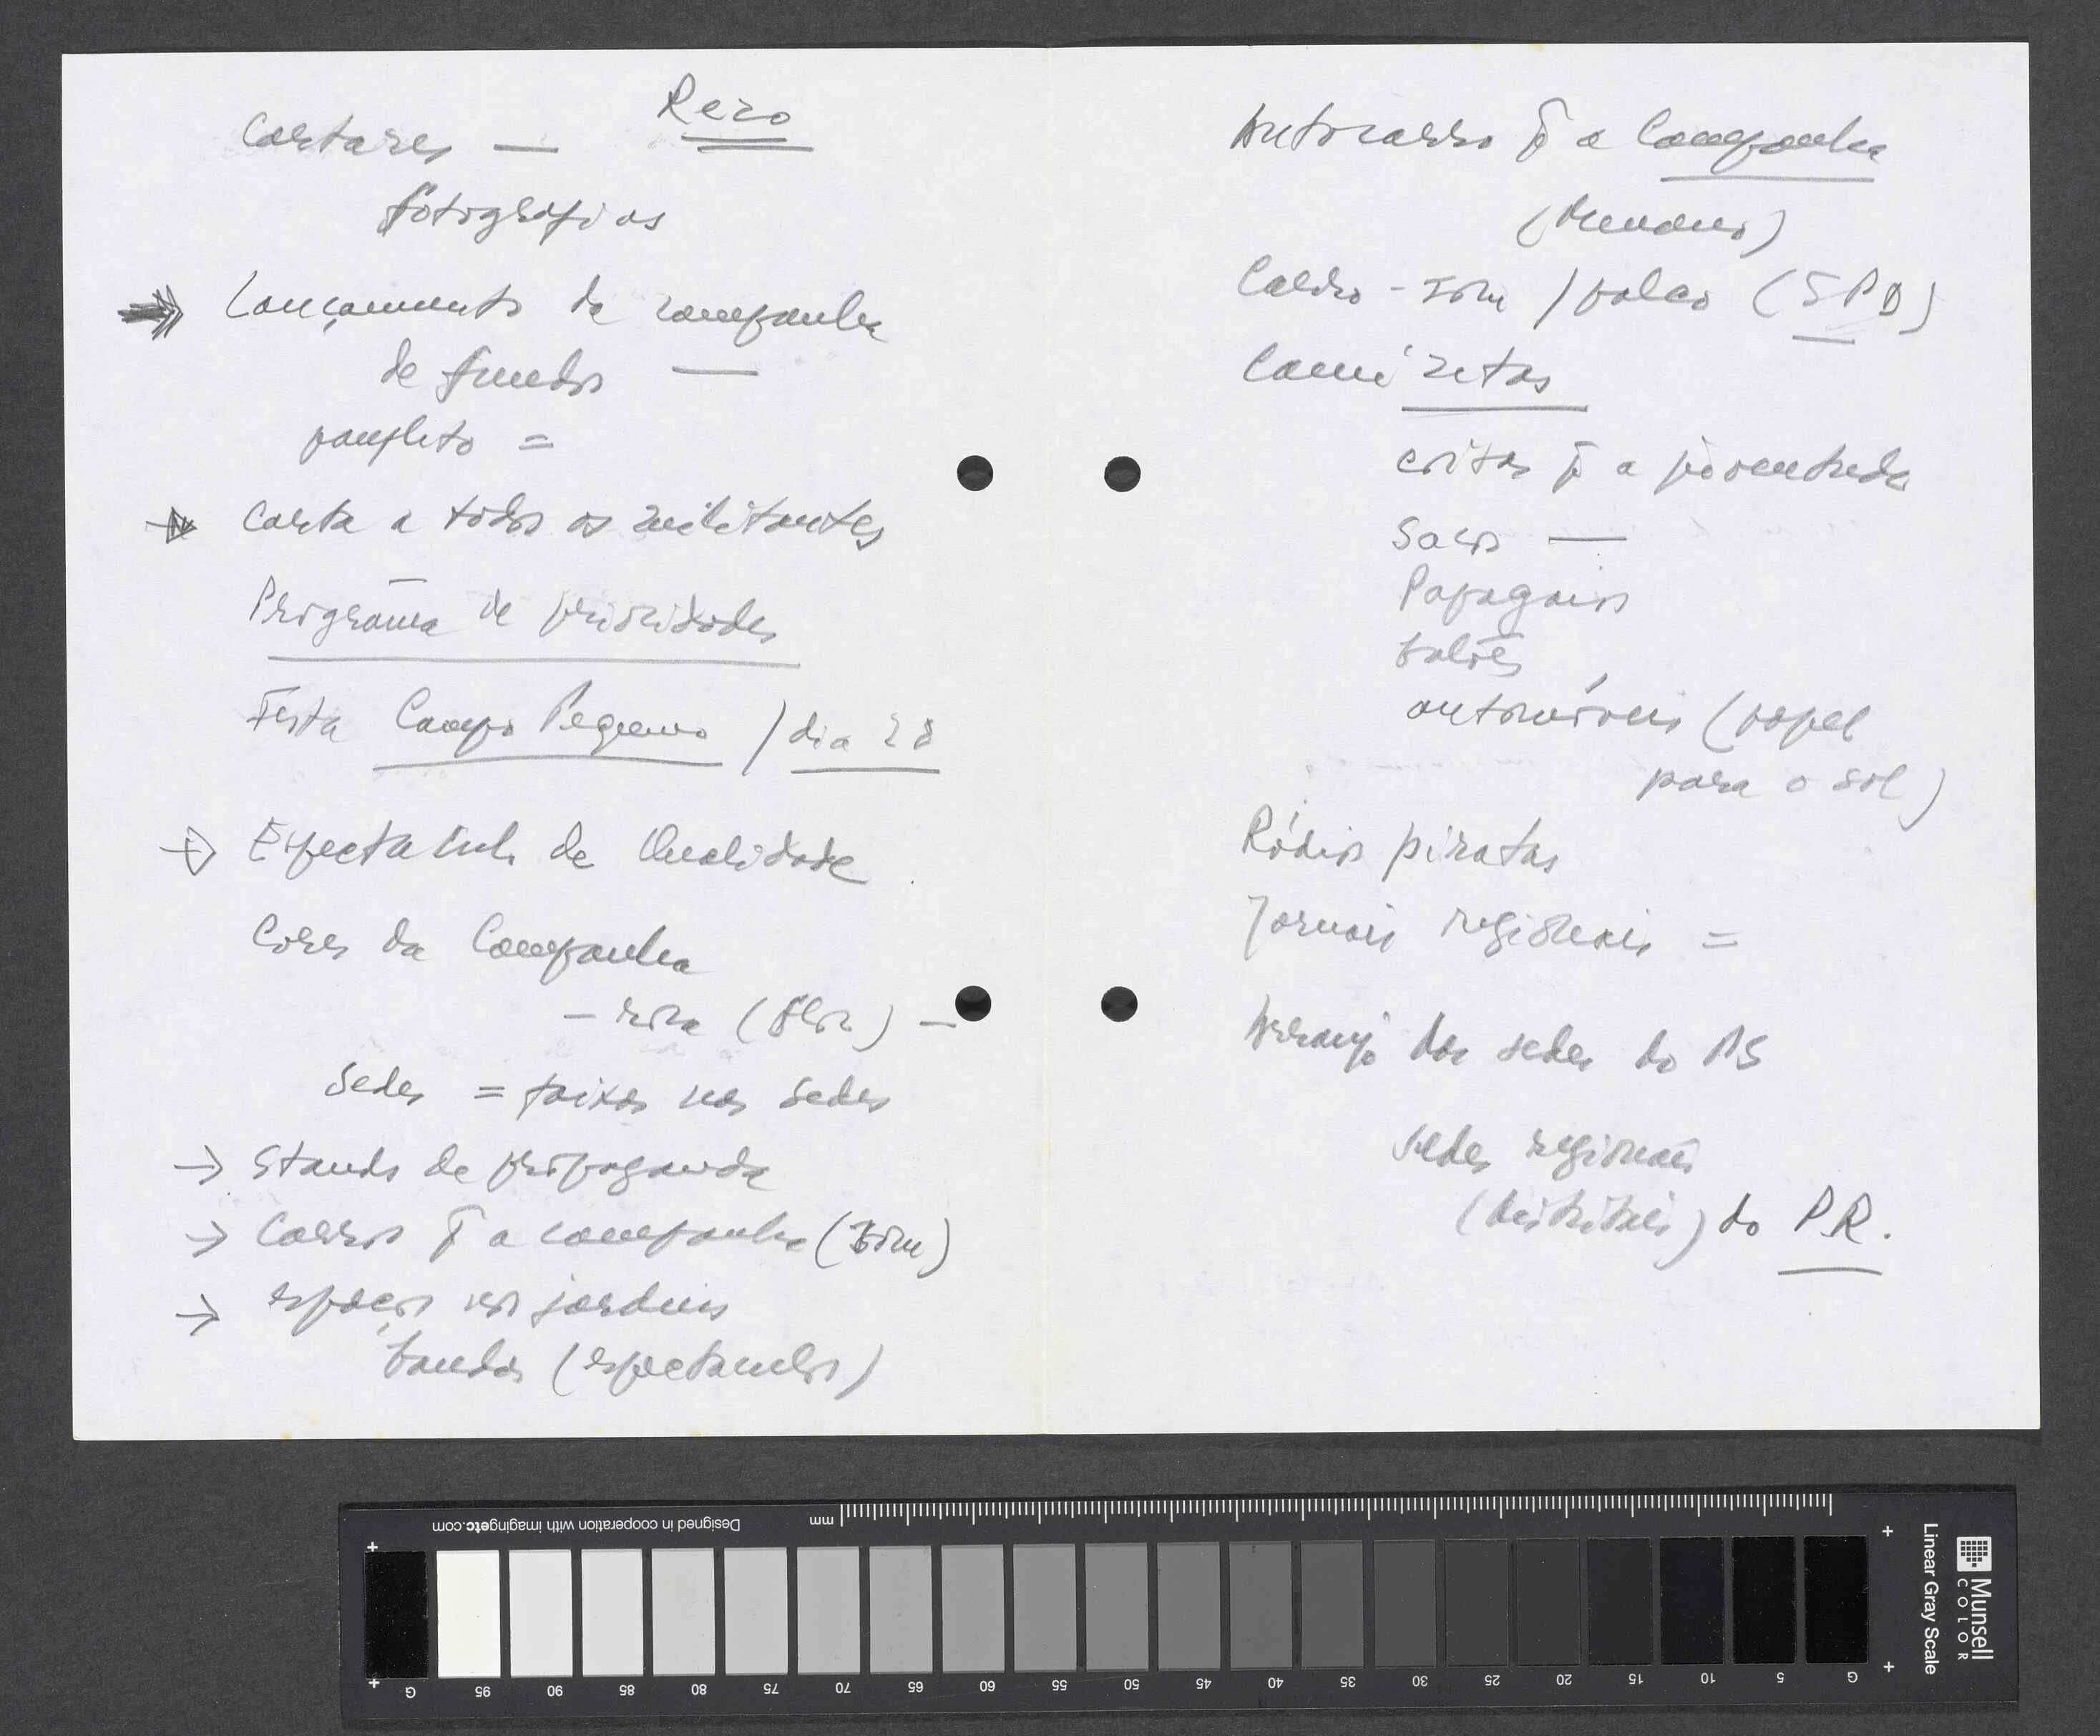 Cartazes — Rezo
fotografias
Lançamento da campanha
de fundos —
panfleto =
Carta a todos os militantes
Programa de prioridades
Festa Campo Pequeno / dia 28
Espectaculo de Qualidade
Cores da Campanha
- rosa (flor) -
Sedes = faixas nas sedes
→ Stands de propaganda
→ Carros p̄ a campanha (som)
→ espaços nos jardins
bandas (espectaculos)
Autocarro p̄ a Campanha
Carro-som / palco (SPD)
Camisetas
coisas p̄ a juventude
Sacos —
Papagaios
balões
automóveis (papel
para o sol)
Rádios piratas
Jornais regionais =
Arranjo das sedes do PS
sedes regionais
(distritais) do P.R.
Designed in cooperation with imagingetc.com
mm
G 95 90 85 80 75 70 65 60 55 50 45 40 35 30 25 20 15 10 5 G
Linear Gray Scale
Munsell
COLOR